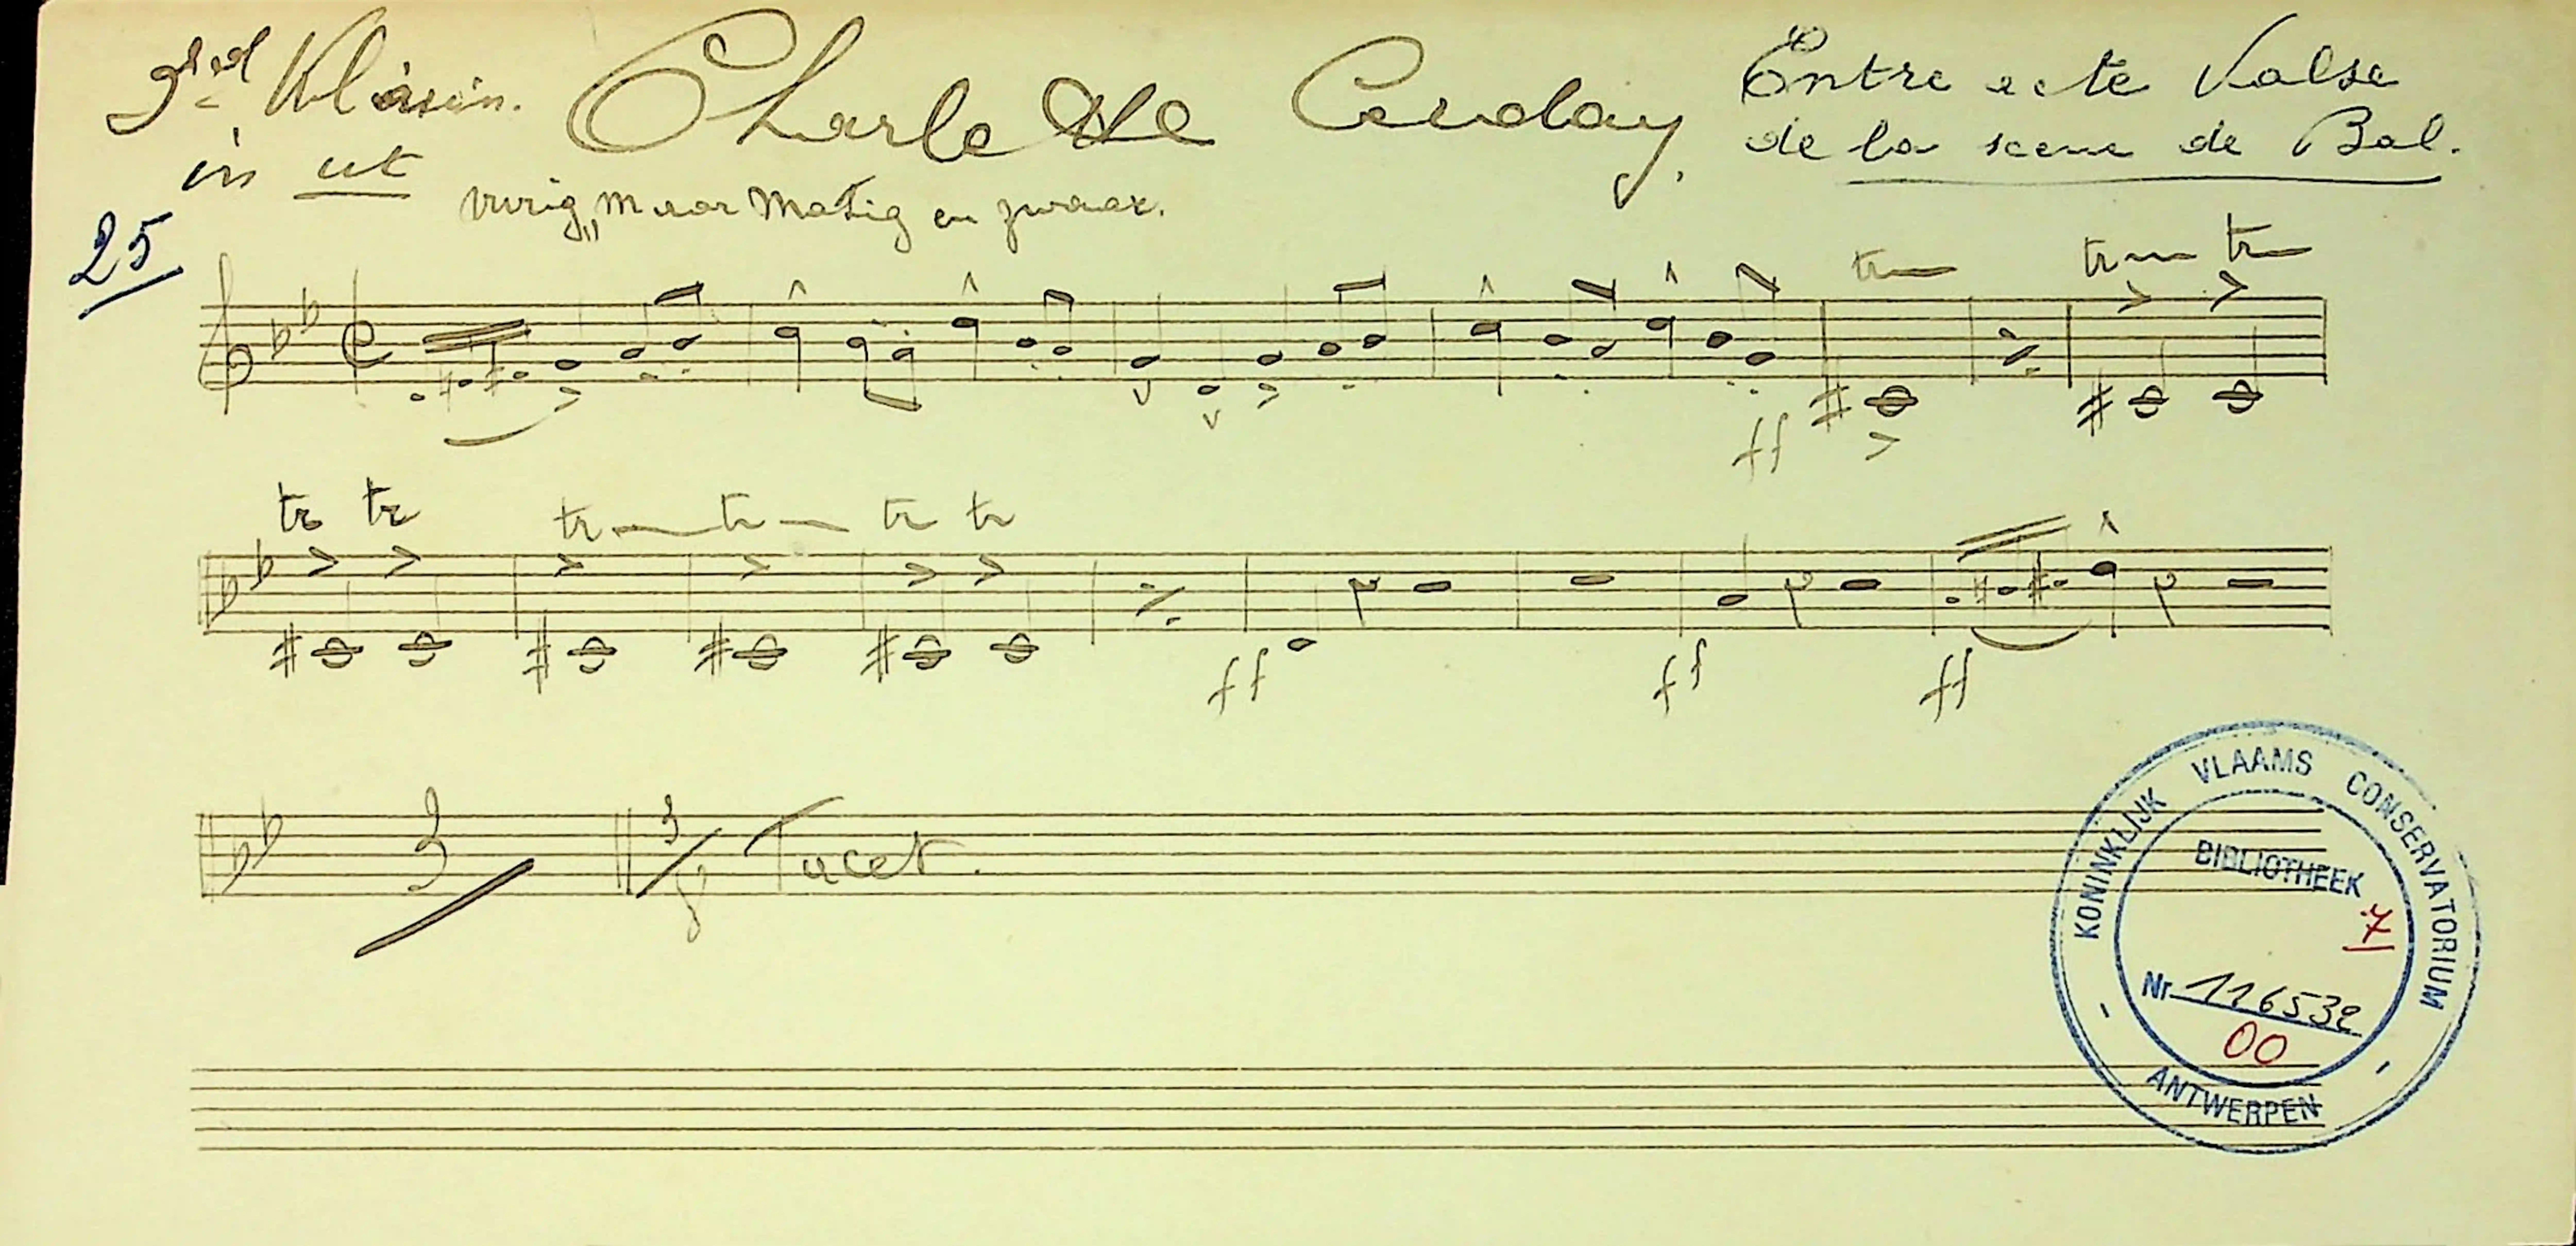 3de Klarin. Charlotte Corday. Entre acte Valse
in ut de la scene de Bal.
vurig, maar Matig en zwaar.
25
tr tr tr
ff
tr tr tr tr tr tr
ff ff ff
3 3/8 Tacet.
KONINKLIJK VLAAMS CONSERVATORIUM
BIBLIOTHEEK
7
Nr 116532
00
ANTWERPEN